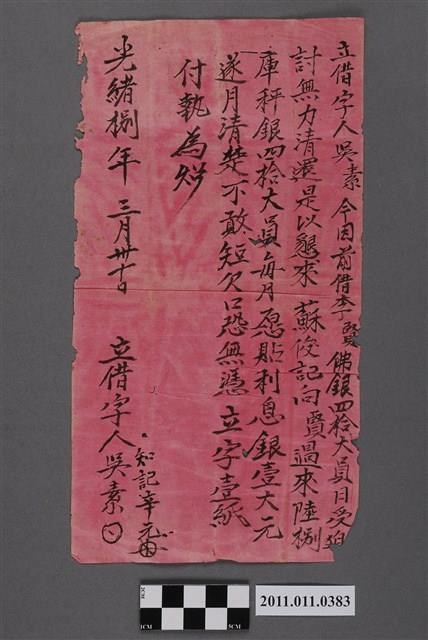 立借字人吳素今因前借李賢佛銀四拾大員日受迫
討無力清還是以懇求蘇俊記向賢過來陸捌
庫秤銀四拾大員每月愿貼利息銀壹大元
逐月清楚不敢短欠口恐無憑立字壹紙
付執為炤
光緒捌年三月卅日
知記辛元
立借字人吳素
2CM
1CM
5CM
2011.011.0383